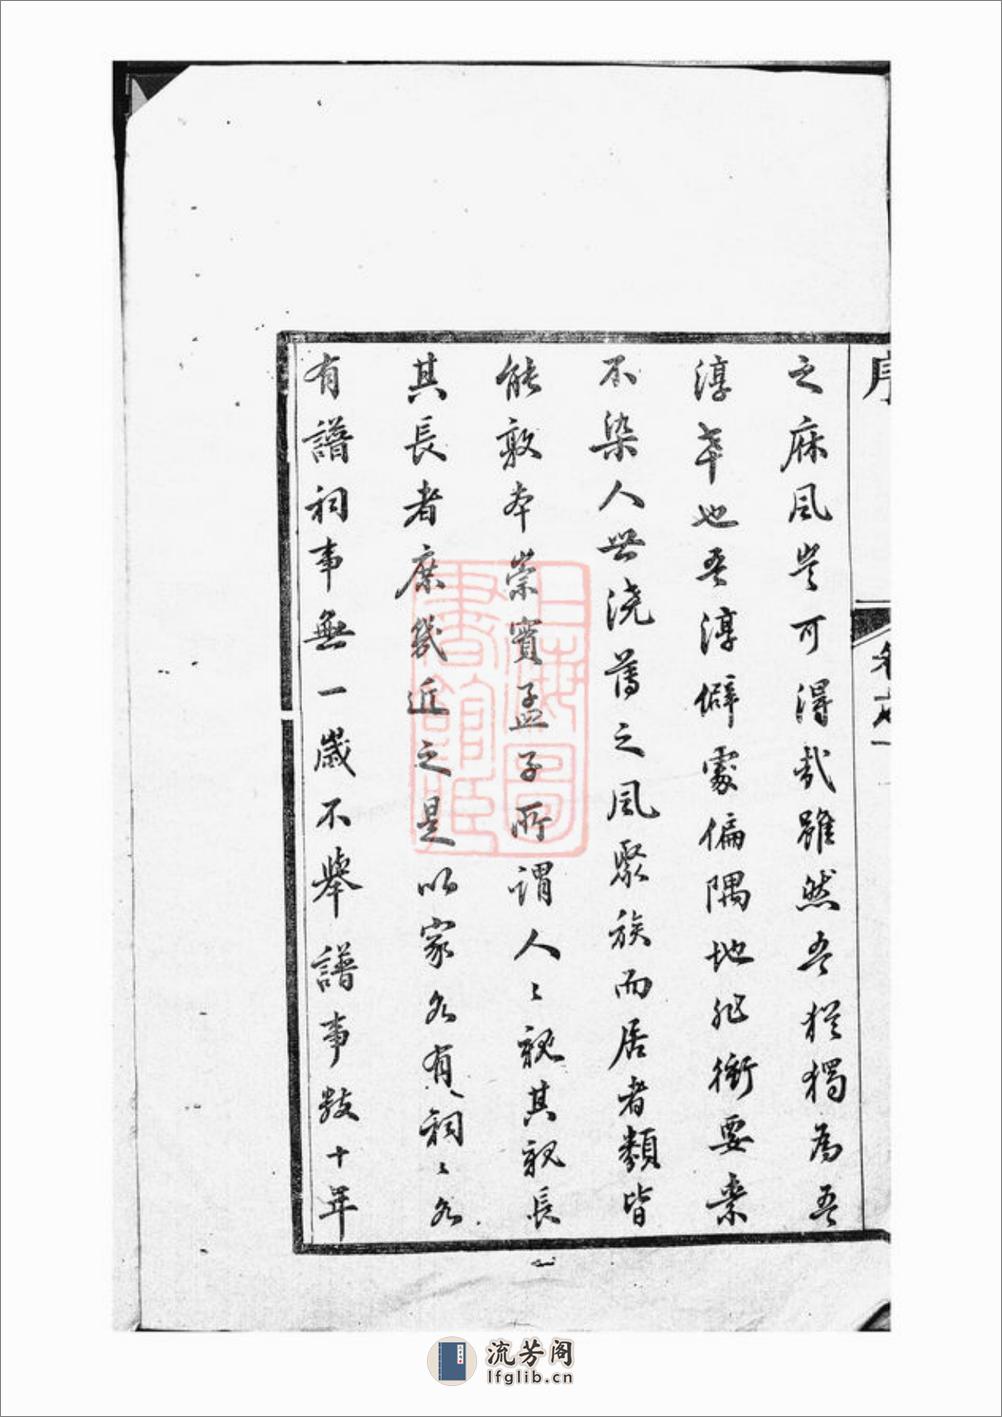 序 卷之一
之庥風豈可得哉雖然吾猶獨為吾
淳幸也吾淳僻處偏隅地非衝要素
不染人世澆薄之風聚族而居者類皆
能敦本崇實孟子所謂人〻親其親長
其長者庶幾近之是以家各有祠〻各
有譜祠事無一歲不舉譜事數十年
上海圖
書館藏
流芳阁
lfglib.cn